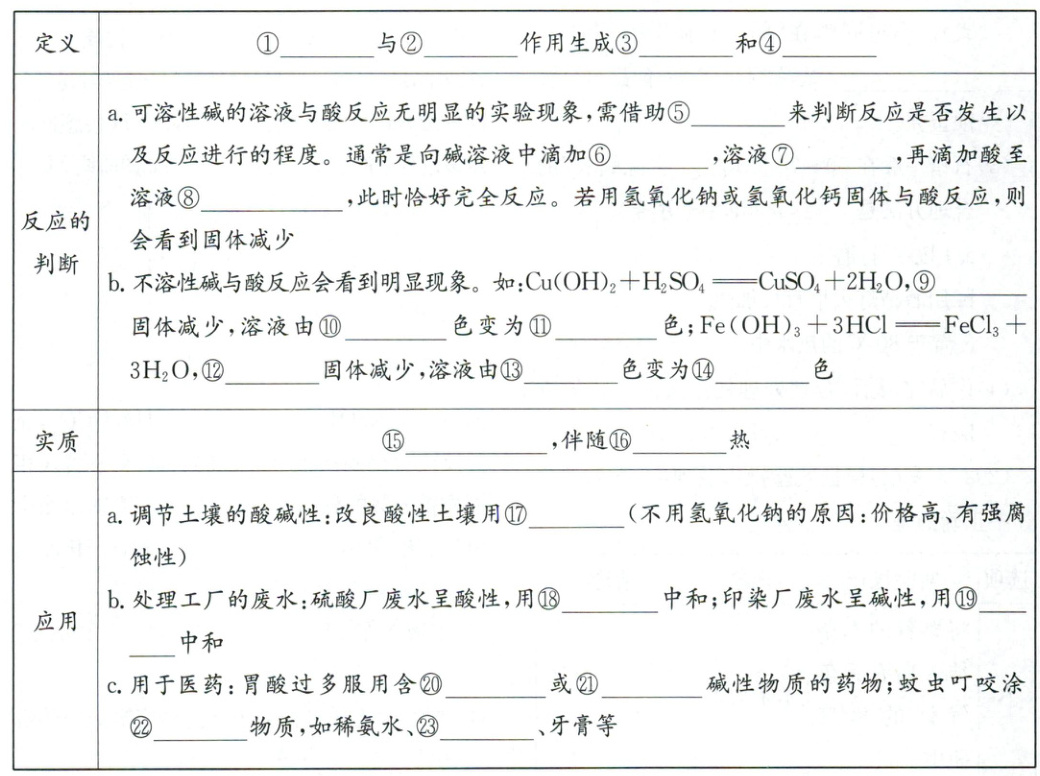 定义
①______与②______作用生成③______和④______
反应的
判断
a. 可溶性碱的溶液与酸反应无明显的实验现象,需借助⑤______来判断反应是否发生以
及反应进行的程度。通常是向碱溶液中滴加⑥______,溶液⑦______,再滴加酸至
溶液⑧______,此时恰好完全反应。若用氢氧化钠或氢氧化钙固体与酸反应,则
会看到固体减少
b. 不溶性碱与酸反应会看到明显现象。如:Cu(OH)₂+H₂SO₄══CuSO₄+2H₂O,⑨
固体减少,溶液由⑩______色变为⑪______色;Fe(OH)₃+3HCl══FeCl₃+
3H₂O,⑫______固体减少,溶液由⑬______色变为⑭______色
实质
⑮______,伴随⑯______热
应用
a. 调节土壤的酸碱性:改良酸性土壤用⑰______(不用氢氧化钠的原因:价格高、有强腐
蚀性)
b. 处理工厂的废水:硫酸厂废水呈酸性,用⑱______中和;印染厂废水呈碱性,用⑲___
___中和
c. 用于医药:胃酸过多服用含⑳______或㉑______碱性物质的药物;蚊虫叮咬涂
㉒______物质,如稀氨水、㉓______、牙膏等